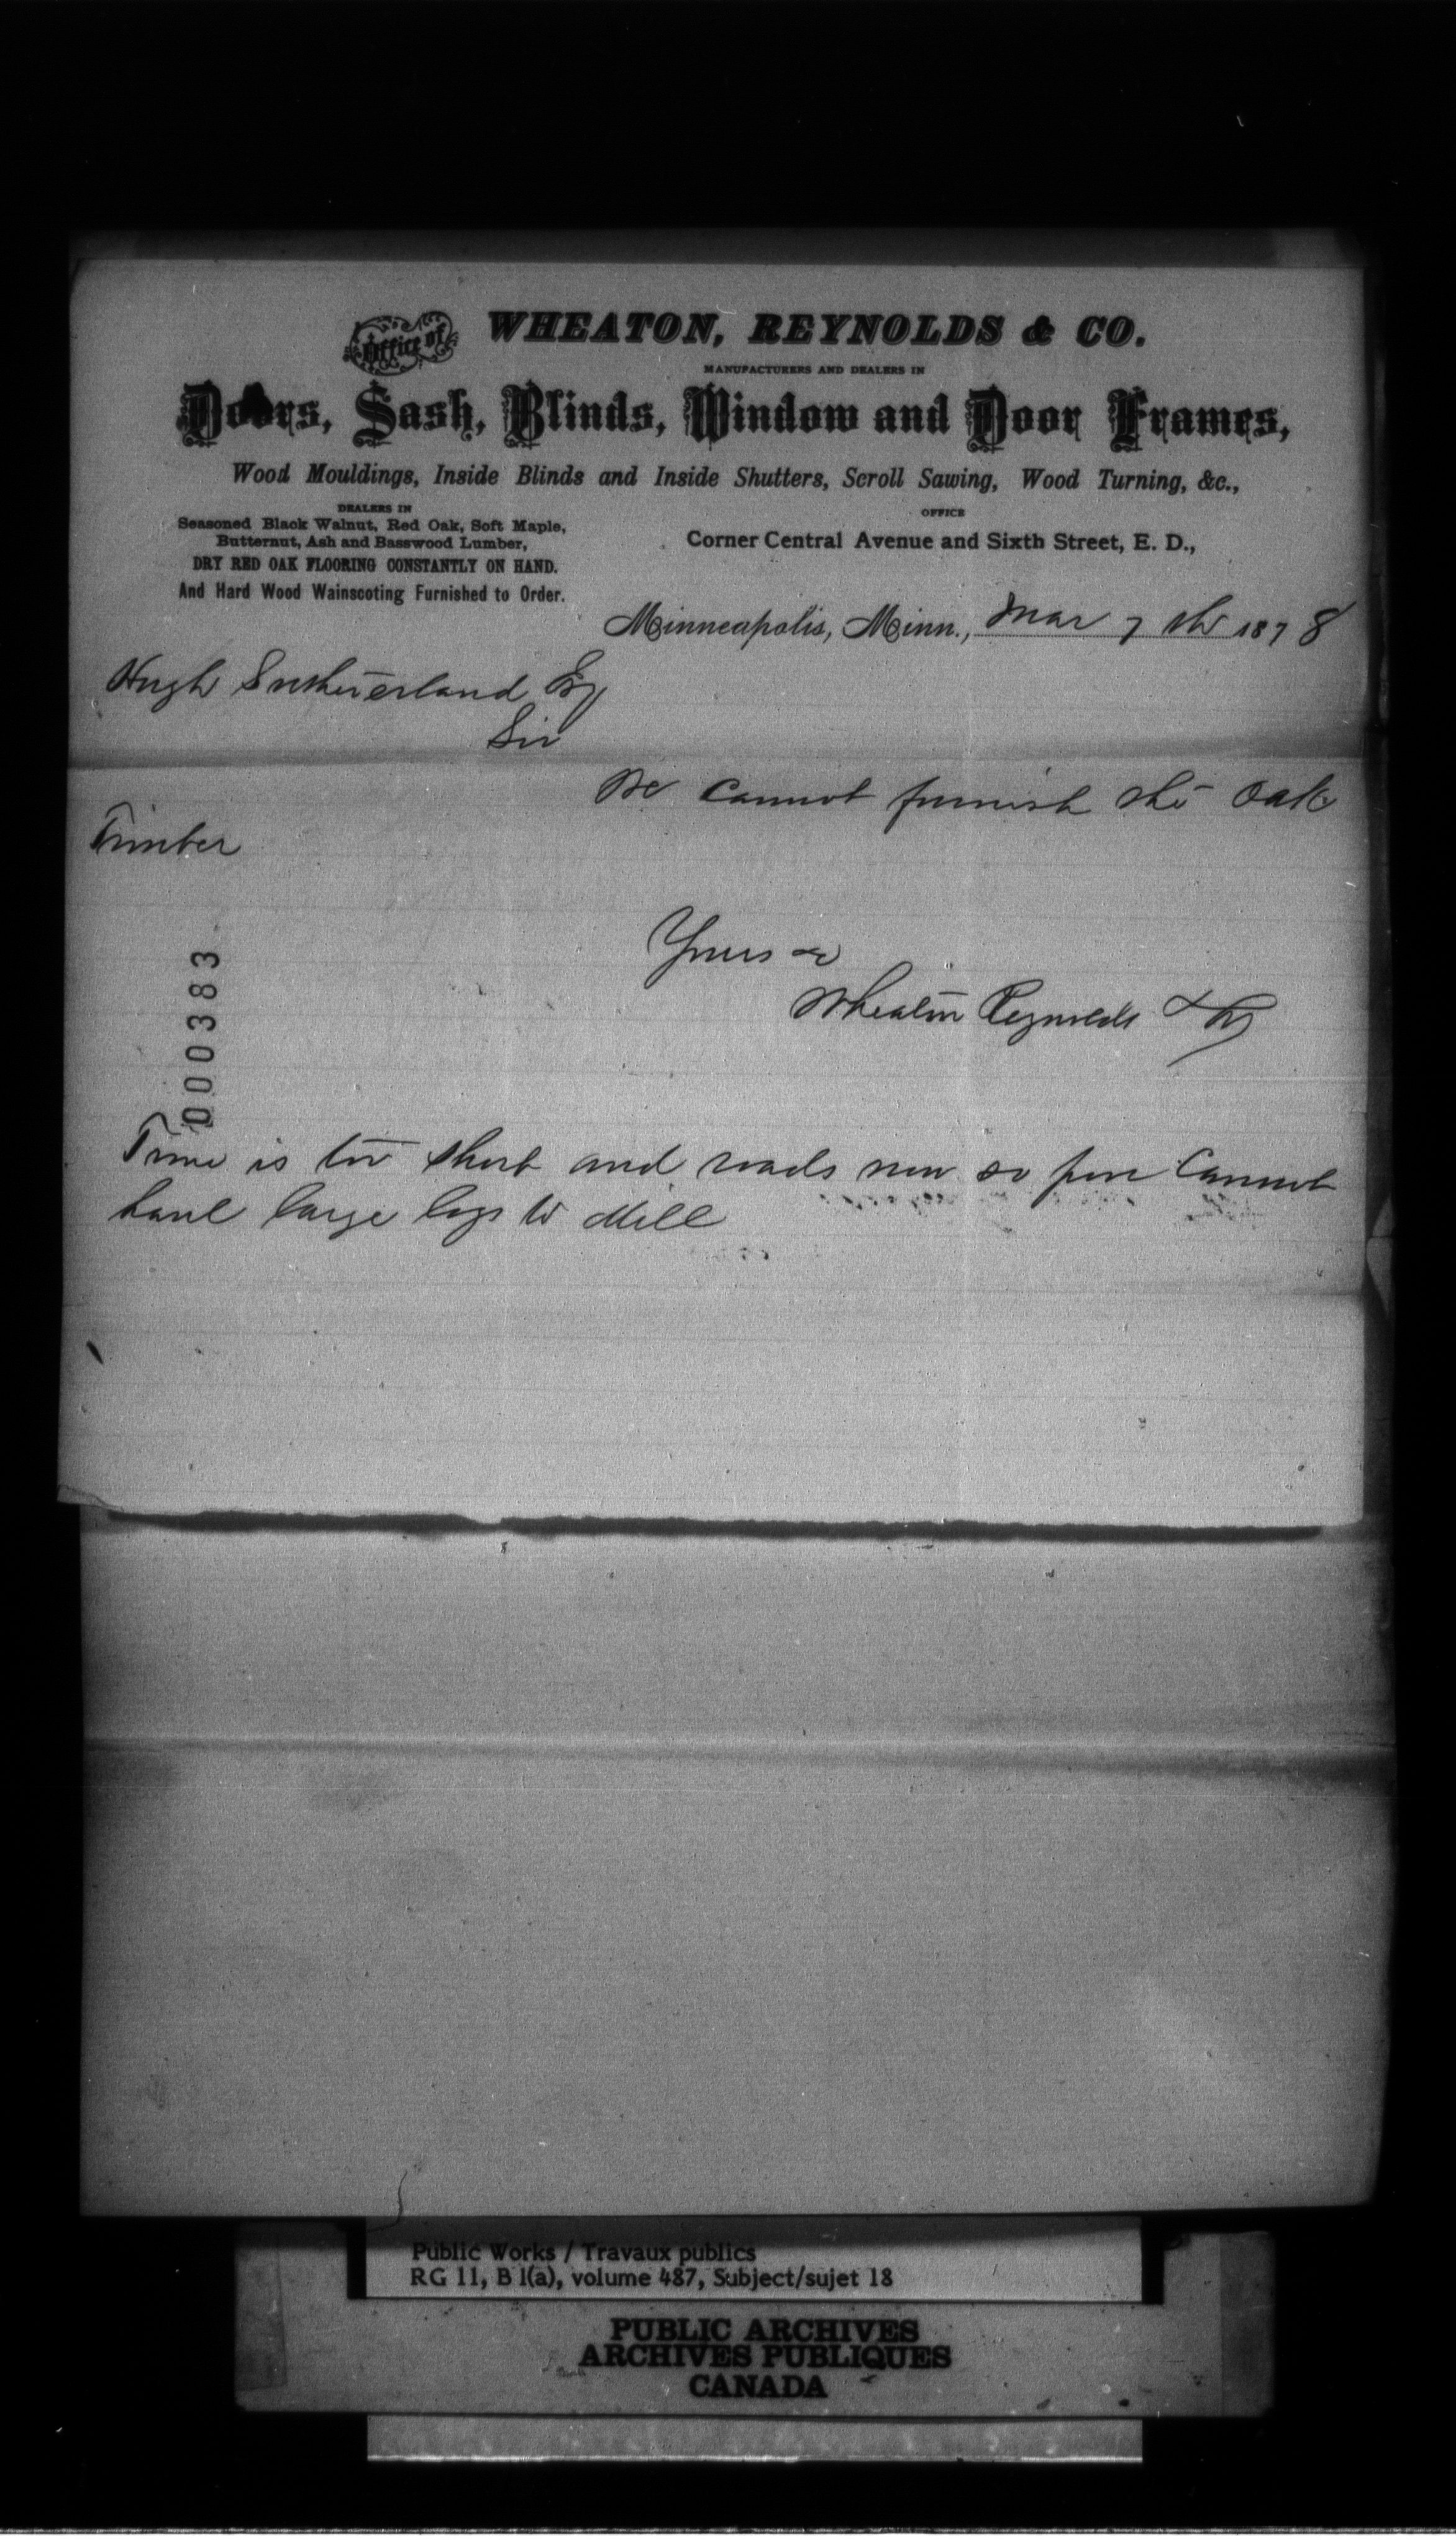 Office of WHEATON, REYNOLDS & CO.
MANUFACTURERS AND DEALERS IN
Doors, Sash, Blinds, Window and Door Frames,
Wood Mouldings, Inside Blinds and Inside Shutters, Scroll Sawing, Wood Turning, &c.,
DEALERS IN
Seasoned Black Walnut, Red Oak, Soft Maple,
Butternut, Ash and Basswood Lumber,
DRY RED OAK FLOORING CONSTANTLY ON HAND.
And Hard Wood Wainscoting Furnished to Order.
OFFICE
Corner Central Avenue and Sixth Street, E. D.,
Minneapolis, Minn., Mar 7 th 1878
Hugh Sutherland Esq
Sir
We cannot furnish the Oak
Timber
Yours &c
Wheaton Reynolds & Co
000383
Time is too short and roads now so poor Cannot
haul large logs to Mill
Public Works / Travaux publics
RG 11, B 1(a), volume 487, Subject/sujet 18
PUBLIC ARCHIVES
ARCHIVES PUBLIQUES
CANADA